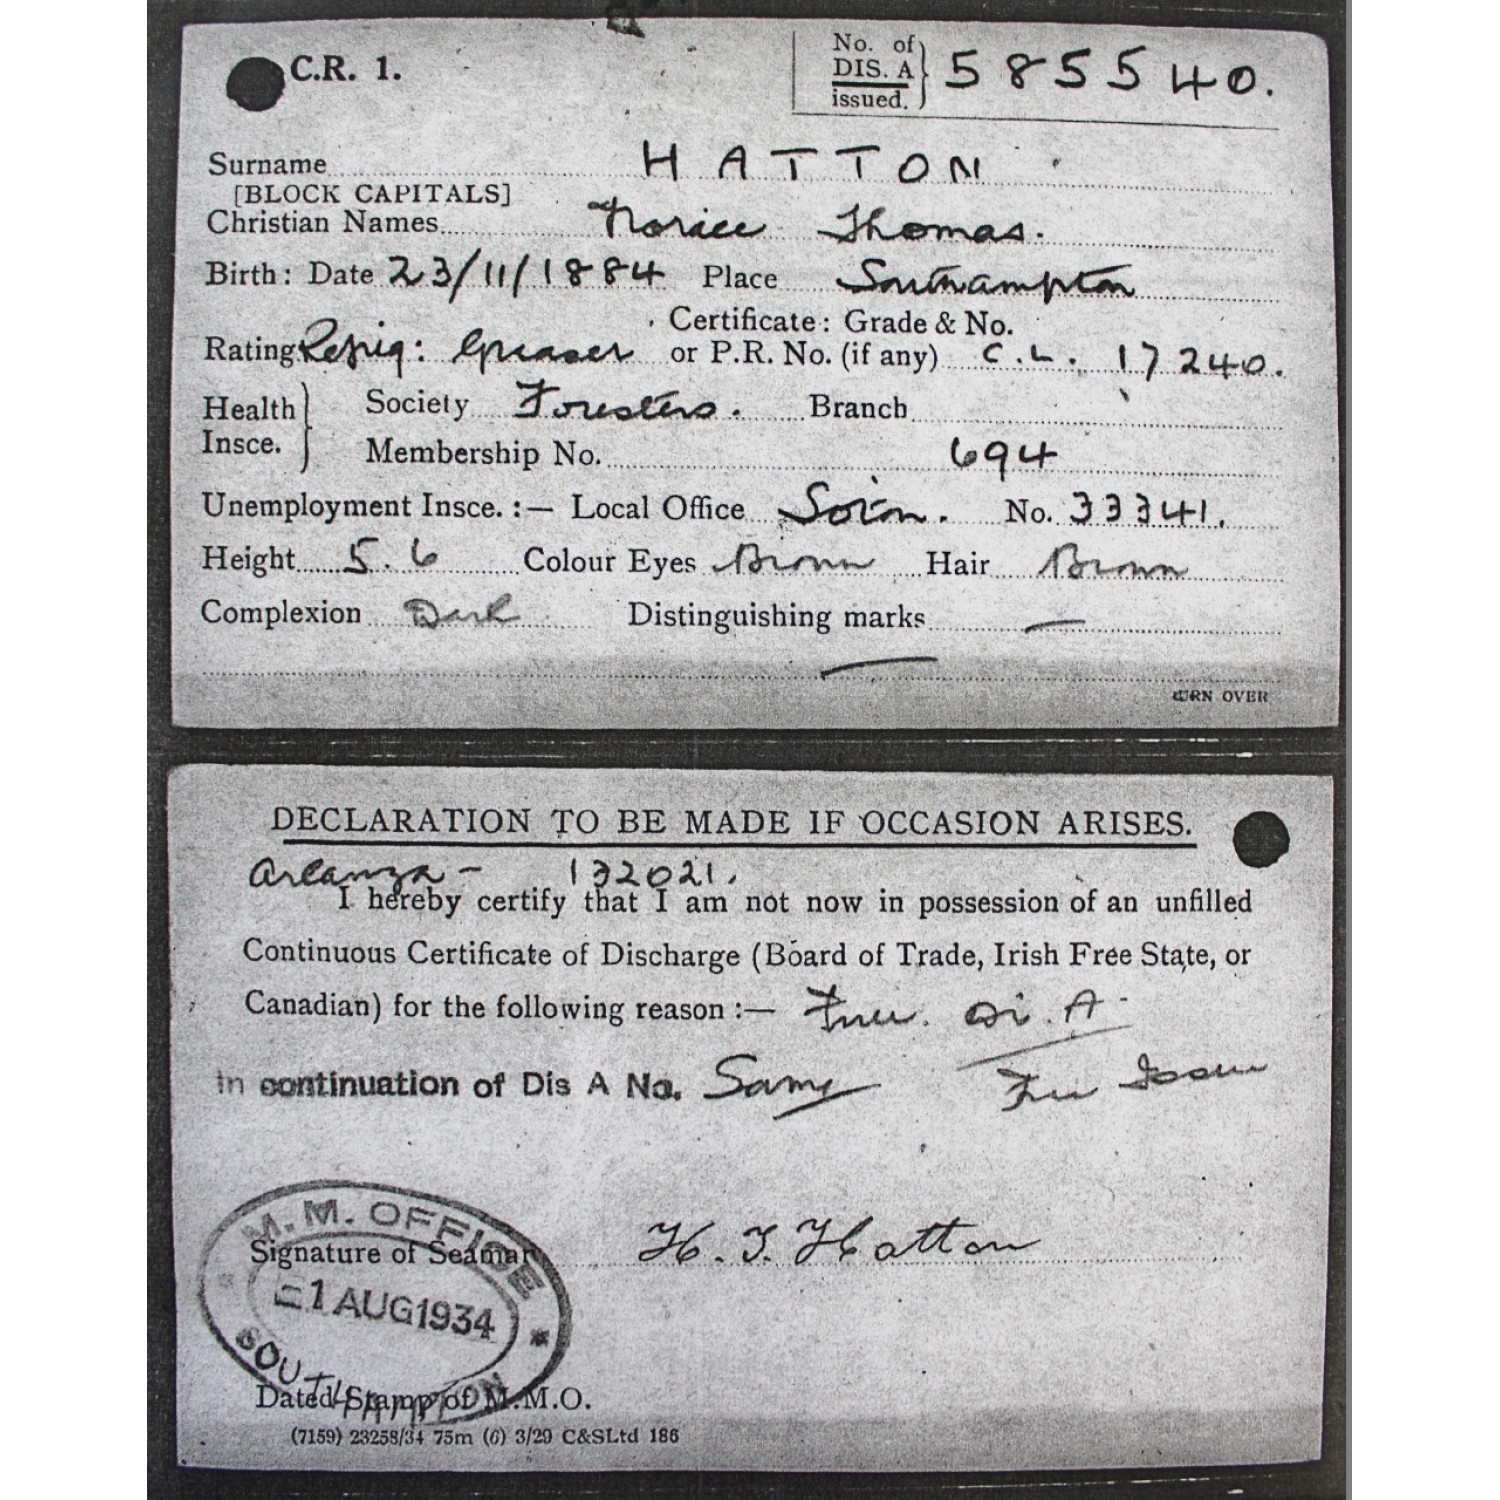 C.R. 1.
No. of DIS. A issued. 585540.
Surname HATTON
[BLOCK CAPITALS]
Christian Names Thomas.
Birth: Date 23/11/1884 Place Southampton
Certificate: Grade & No.
Rating Refrig: Greaser or P.R. No. (if any) C.L. 17240.
Health Insce. Society Foresters. Branch
Membership No. 694
Unemployment Insce. :— Local Office Soton. No. 33341.
Height 5.6 Colour Eyes Brown Hair Brown
Complexion Dark Distinguishing marks —
—
TURN OVER
DECLARATION TO BE MADE IF OCCASION ARISES.
Arlanza - 132021.
I hereby certify that I am not now in possession of an unfilled
Continuous Certificate of Discharge (Board of Trade, Irish Free State, or
Canadian) for the following reason :— Dis. A
In continuation of Dis A No. Same Issue
M.M. OFFICE
Signature of Seaman H. T. Hatton
1 AUG 1934
SOUTHAMPTON
Dated Stamp of M.M.O.
(7159) 23258/34 75m (6) 3/29 C&SLtd 186